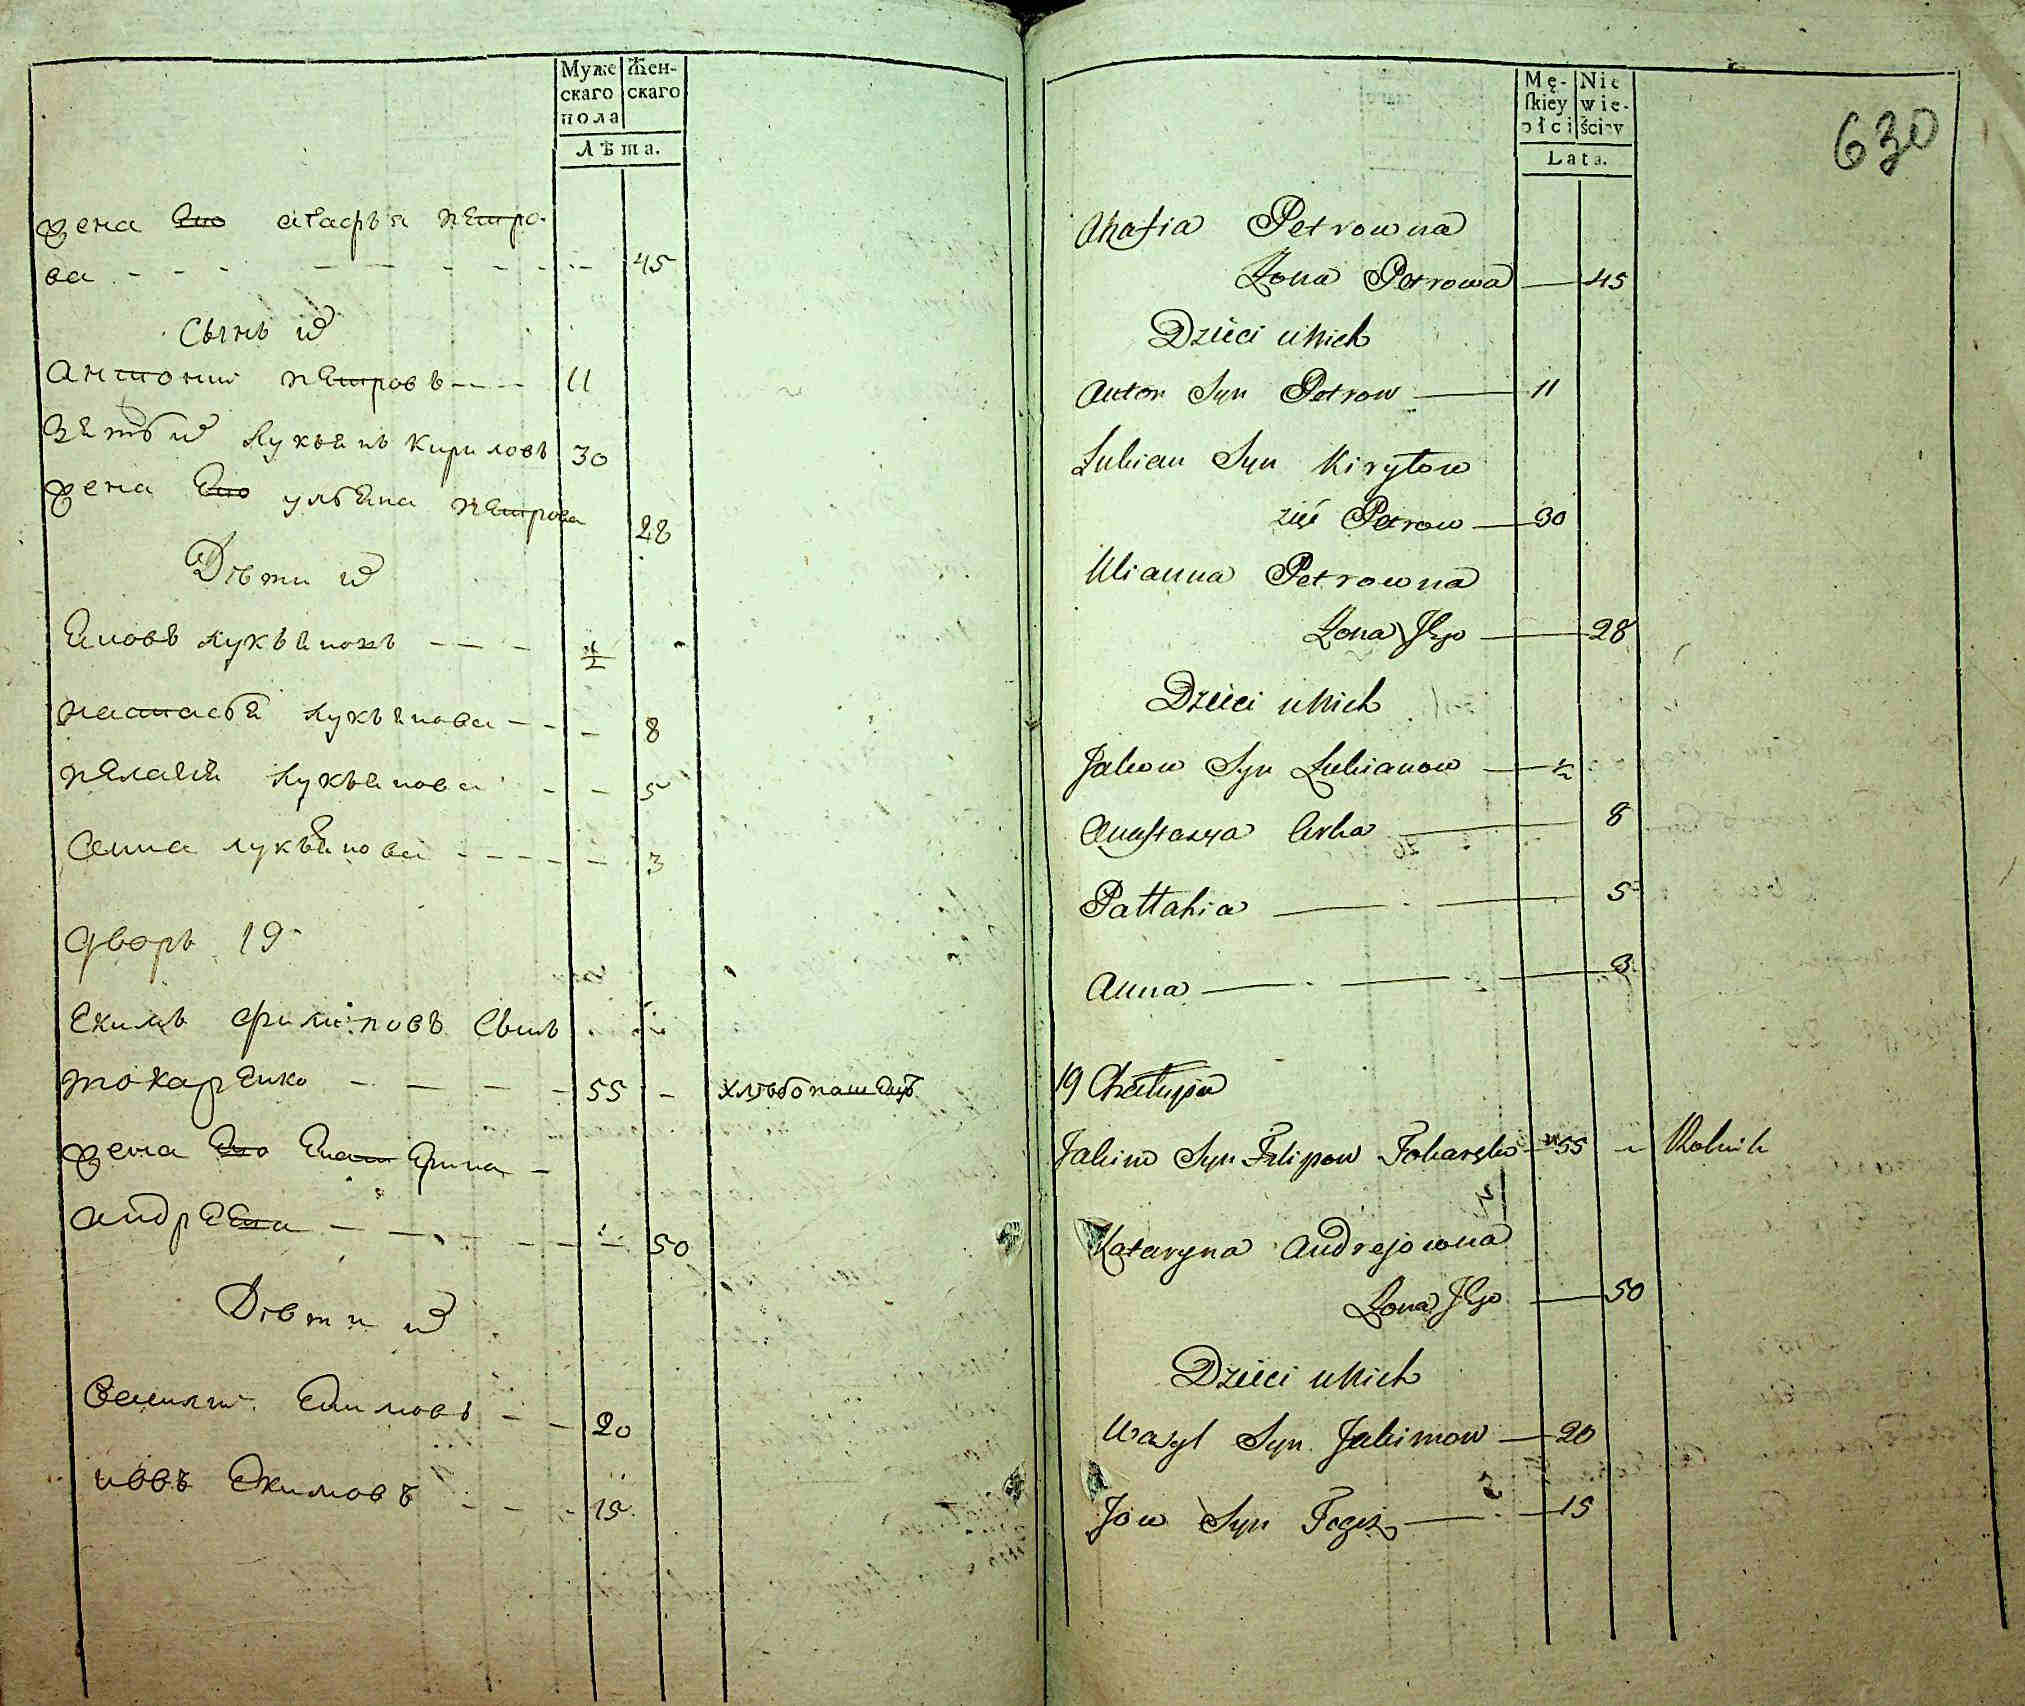 Муже Жен-
скаго скаго
пола
Лѣта.
жена Его агафья петро-
ва 45
Сынъ их
антоний петровъ 11
зять их лукьянъ кириловъ 30
жена Его ульяна петрова 28
Дѣти их
Яковъ лукьяновъ ½
настасья лукьянова 8
пелагия лукьянова 5
анна лукьянова 3
дворъ 19
Екимъ филиповъ Сынъ
токаренко 55 хлѣбопашецъ
жена Его Екатерина
андреева 50
Дѣти их
Василий Екимовъ 20
иовъ Екимовъ 15
Mę- Nie
skiey wie-
płci ściey
Lata.
630
Ahafia Petrowna
Żona Petrowa 45
Dzieci u Nich
Anton Syn Petrow 11
Lukian Syn Kiryłow
zięć Petrow 30
Ulianna Petrowna
Żona Jego 28
Dzieci u Nich
Jakow Syn Lukianow ½
Anastazya Corka 8
Pałłahia 5
Anna 3
19 Chałupa
Jakim Syn Filipow Tokarenko 55 Rolnik
Kataryna Andrejowna
Żona Jego 50
Dzieci u Nich
Wasyl Syn Jakimow 20
Jow Syn Tegoż 15